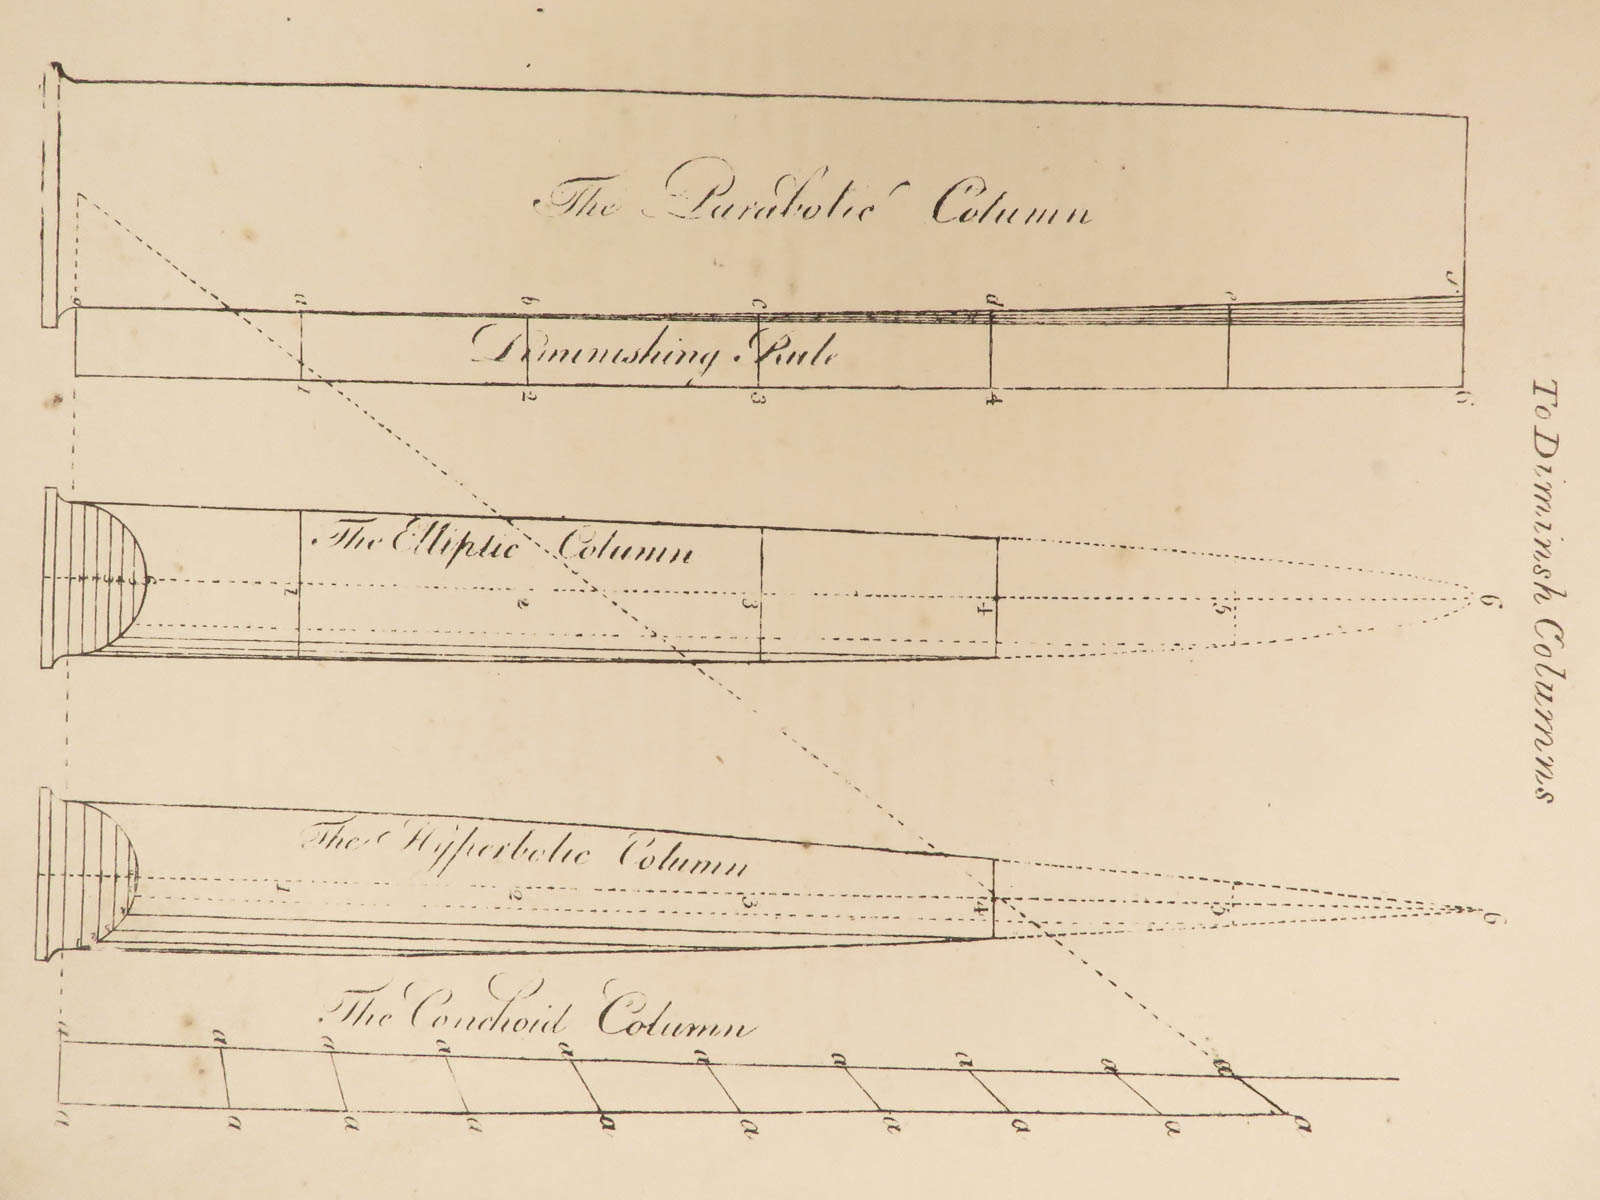 To Diminish Columns
The Parabolic Column
a b c d e f
Diminishing Rule
1 2 3 4 6
The Elliptic Column
1 2 3 4 5 6
The Hyperbolic Column
1 2 3 4 5 6
The Conchoid Column
a a a a a a a a a a
a a a a a a a a a a